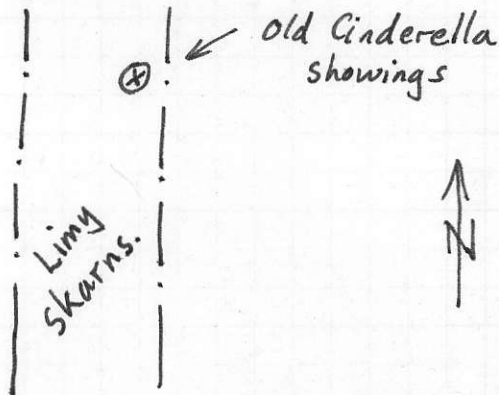 Old Cinderella
showings
Limy
skarns.
N